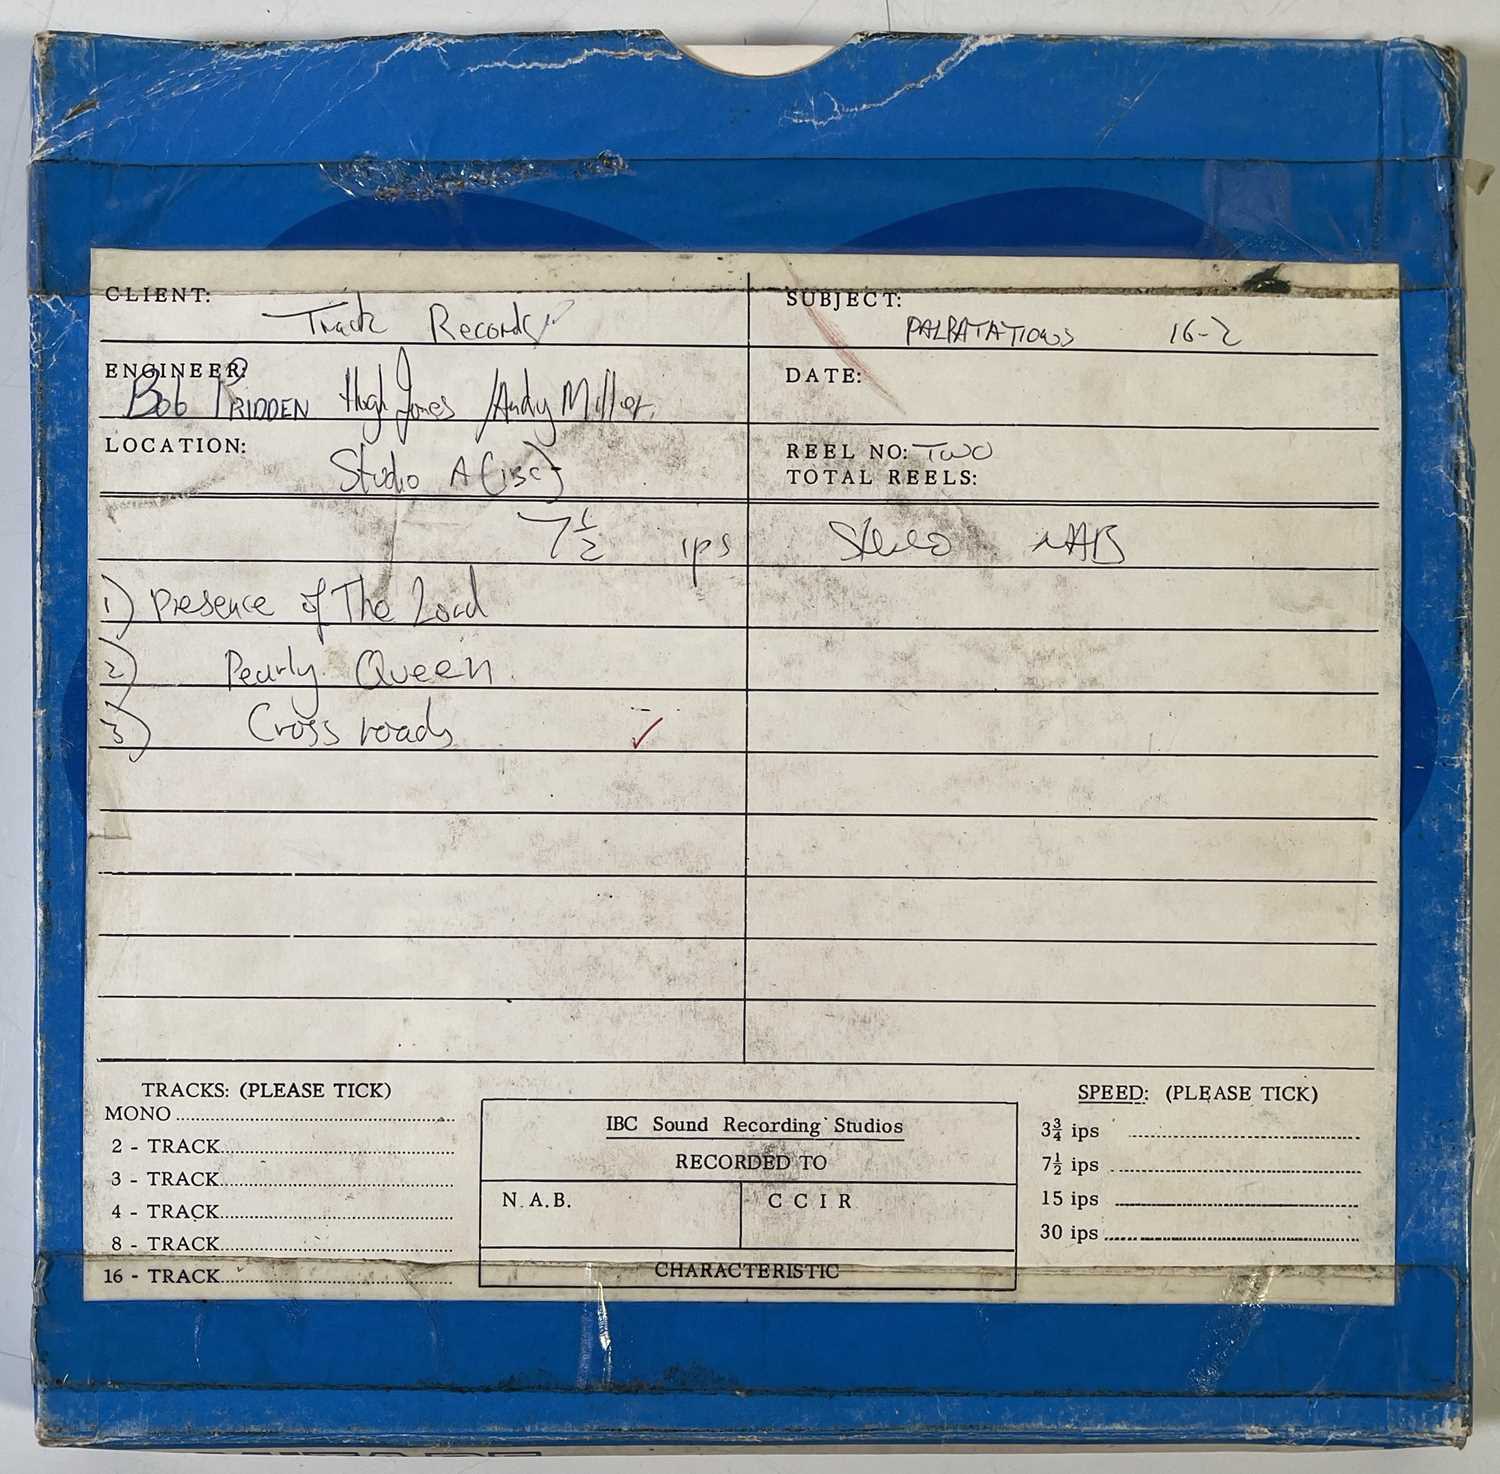 CLIENT: Track Records
SUBJECT: PALPATATIONS 16-2
ENGINEER: Bob PRIDDEN Hugh Jones / Andy Miller.
DATE:
LOCATION: Studio A (IBC)
REEL NO: TWO
TOTAL REELS:
7½ ips Stereo NAB
1) Presence of The Lord
2) Pearly Queen.
3) Cross roads ✓
TRACKS: (PLEASE TICK)
MONO
2 - TRACK
3 - TRACK
4 - TRACK
8 - TRACK
16 - TRACK
IBC Sound Recording Studios
RECORDED TO
N.A.B. C C I R
CHARACTERISTIC
SPEED: (PLEASE TICK)
3¾ ips
7½ ips
15 ips
30 ips